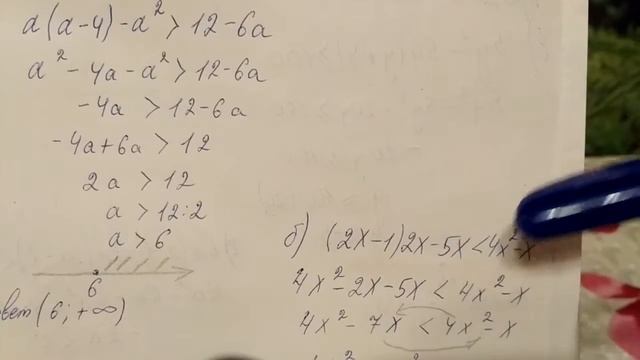 a(a-4)-a²>12-6a
a²-4a-a²>12-6a
-4a>12-6a
-4a+6a>12
2a>12
a>12:2
a>6
6
вет (6;+∞)
б) (2x-1)2x-5x<4x²-x
4x²-2x-5x<4x²-x
4x²-7x<4x²-x